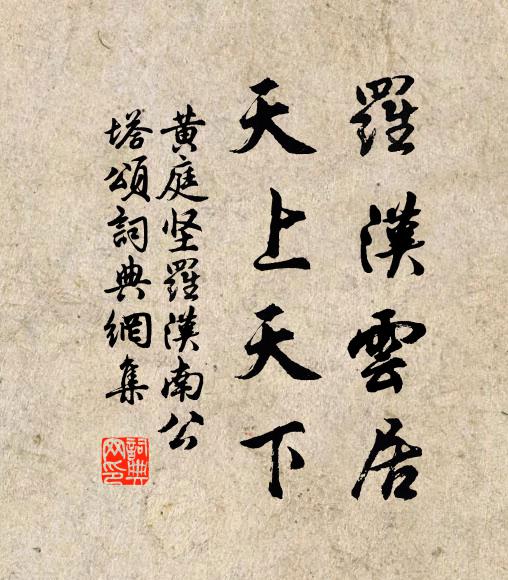 羅漢雲居
天上天下
黄庭坚羅漢南公
塔頌詞典網集
詞典网印